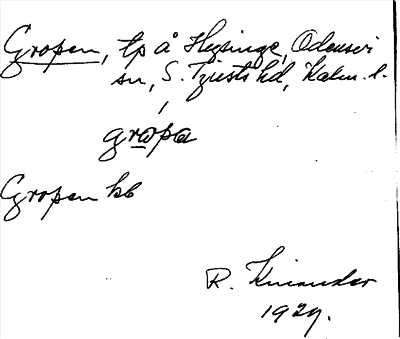 Gropen, tp å Helsinge, Odensvi
sn, S. Tjusts hd, Kalm. l.
grωpa
Gropen kb
R. Kinander
1929.